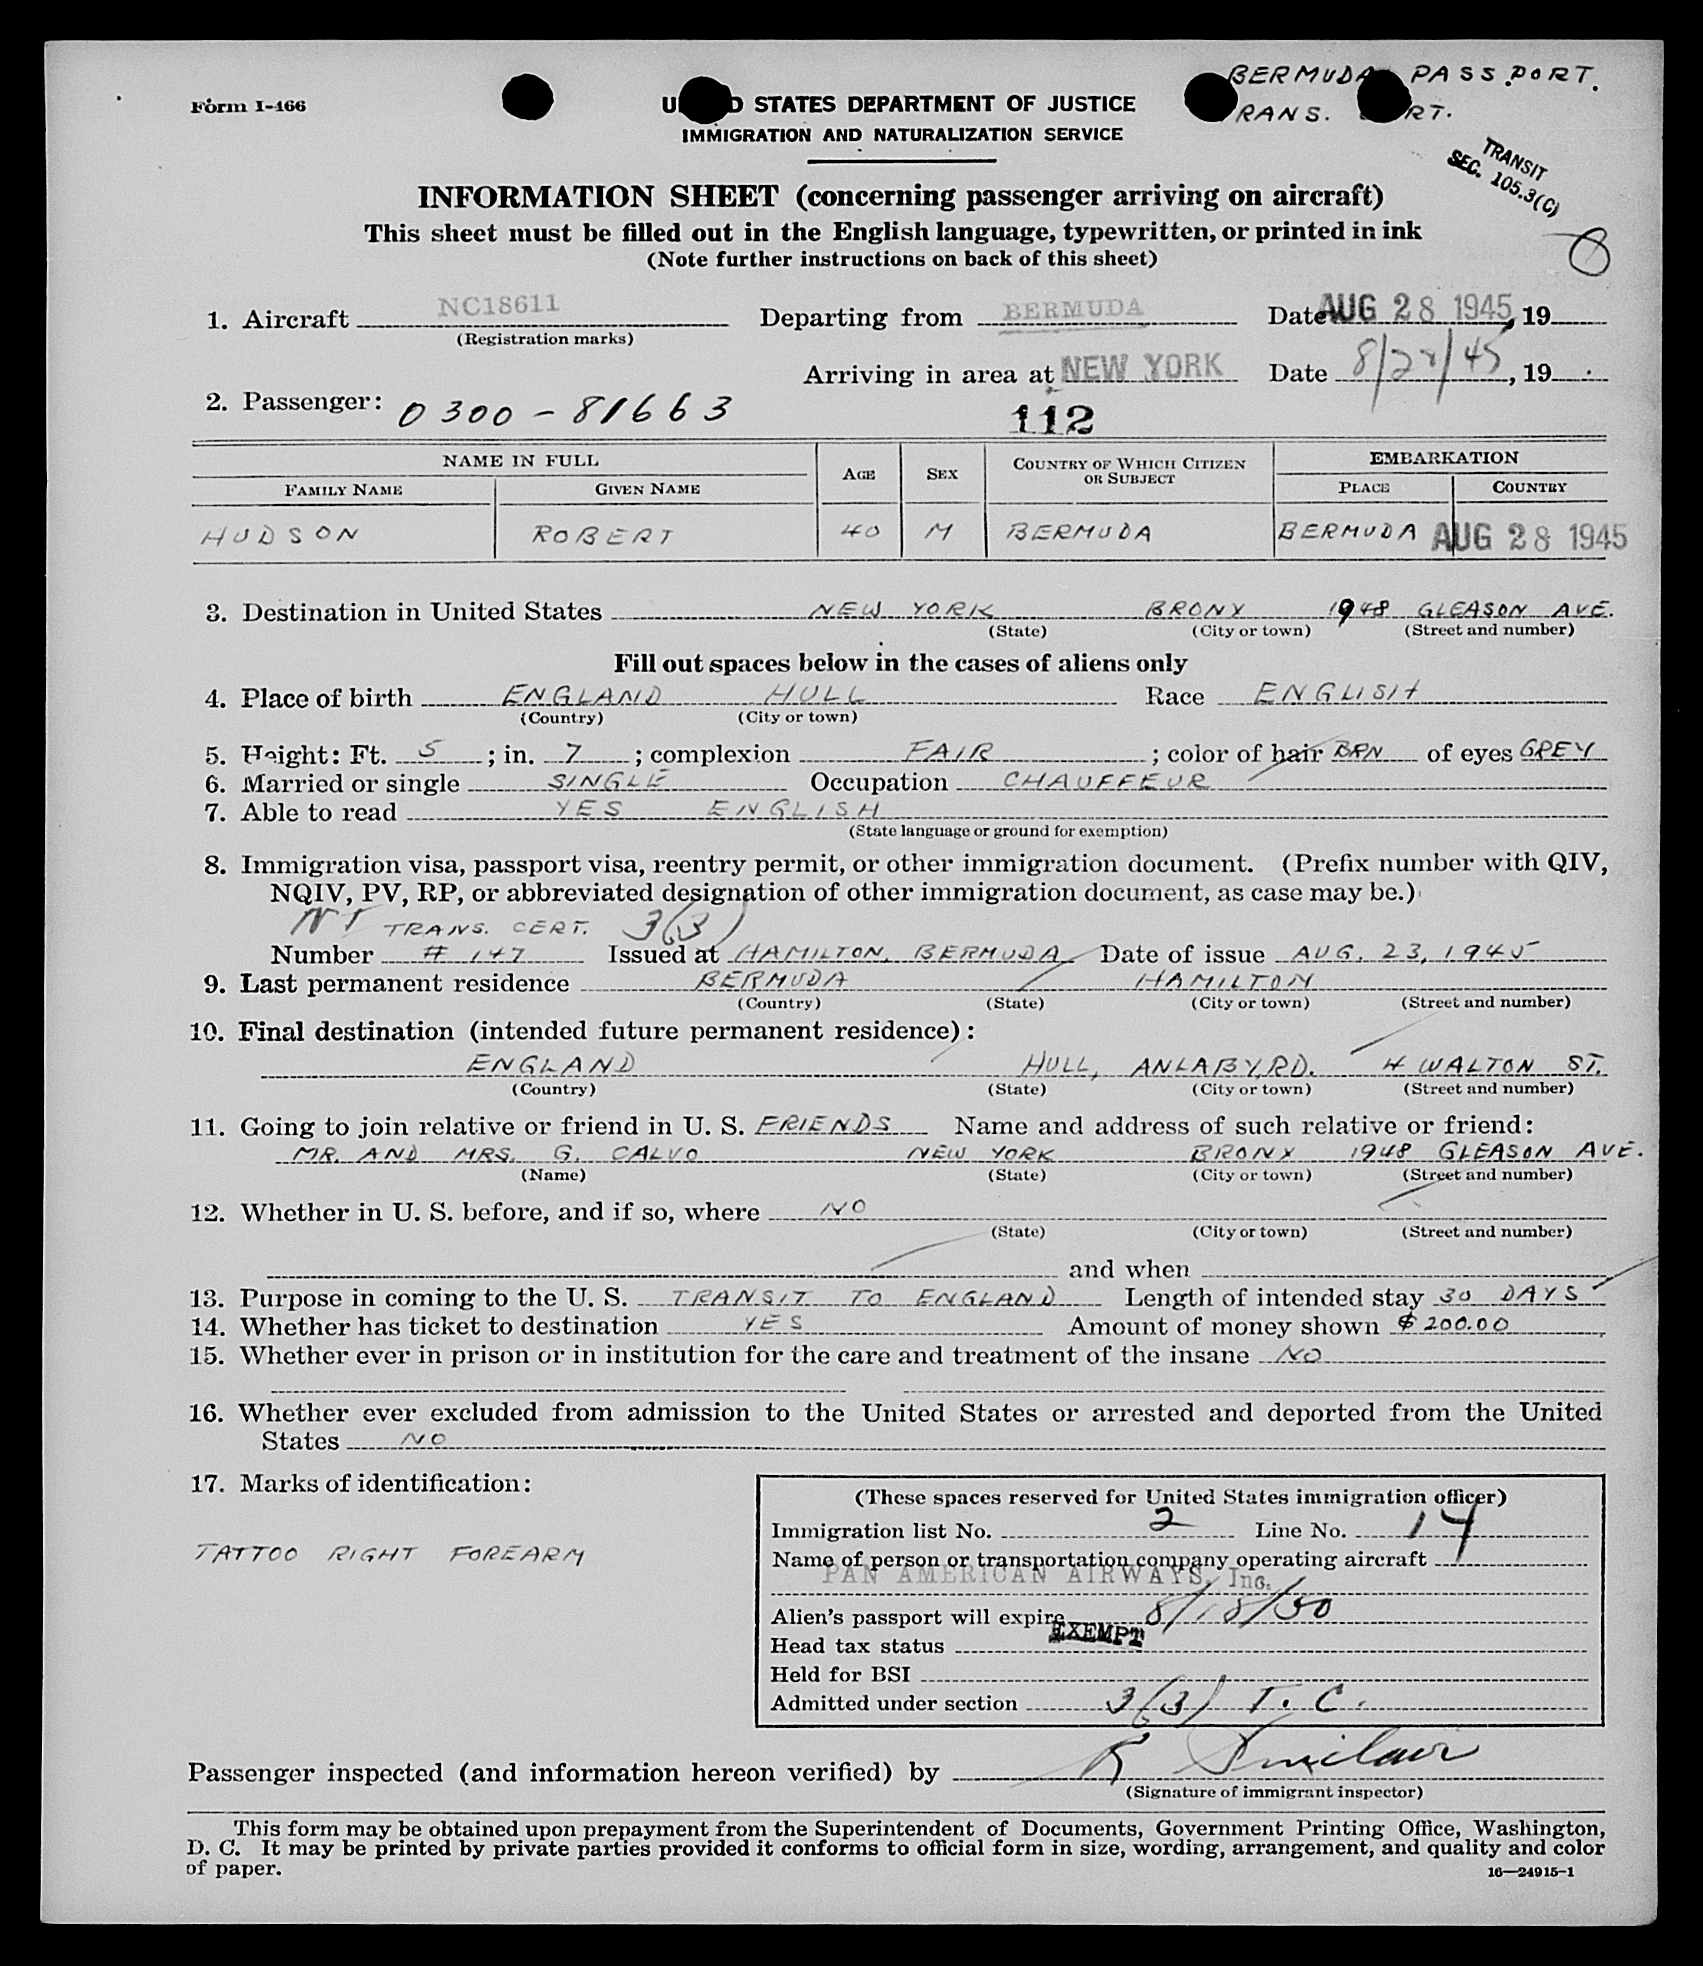 BERMUDA PASSPORT.
Form I-466 STATES DEPARTMENT OF JUSTICE
RANS. RT.
IMMIGRATION AND NATURALIZATION SERVICE
TRANSIT
SEC. 105.3(C)
INFORMATION SHEET (concerning passenger arriving on aircraft)
This sheet must be filled out in the English language, typewritten, or printed in ink
(Note further instructions on back of this sheet)
8
1. Aircraft NC18611 Departing from BERMUDA Date AUG 28 1945, 19
(Registration marks)
Arriving in area at NEW YORK Date 8/28/45, 19
2. Passenger: 0300-81663 112
NAME IN FULL AGE SEX COUNTRY OF WHICH CITIZEN OR SUBJECT EMBARKATION
FAMILY NAME GIVEN NAME PLACE COUNTRY
HUDSON ROBERT 40 M BERMUDA BERMUDA AUG 28 1945
3. Destination in United States NEW YORK BRONX 1948 GLEASON AVE.
(State) (City or town) (Street and number)
Fill out spaces below in the cases of aliens only
4. Place of birth ENGLAND HULL Race ENGLISH
(Country) (City or town)
5. Height: Ft. 5; in. 7; complexion FAIR; color of hair BRN of eyes GREY
6. Married or single SINGLE Occupation CHAUFFEUR
7. Able to read YES ENGLISH
(State language or ground for exemption)
8. Immigration visa, passport visa, reentry permit, or other immigration document. (Prefix number with QIV,
NQIV, PV, RP, or abbreviated designation of other immigration document, as case may be.)
TRANS. CERT. 3(3)
Number # 147 Issued at HAMILTON, BERMUDA Date of issue AUG. 23, 1945
9. Last permanent residence BERMUDA HAMILTON
(Country) (State) (City or town) (Street and number)
10. Final destination (intended future permanent residence):
ENGLAND HULL, ANLABY RD. 4 WALTON ST.
(Country) (State) (City or town) (Street and number)
11. Going to join relative or friend in U. S. FRIENDS Name and address of such relative or friend:
MR. AND MRS. G. CALVO NEW YORK BRONX 1948 GLEASON AVE.
(Name) (State) (City or town) (Street and number)
12. Whether in U. S. before, and if so, where NO
(State) (City or town) (Street and number)
and when
13. Purpose in coming to the U. S. TRANSIT TO ENGLAND Length of intended stay 30 DAYS
14. Whether has ticket to destination YES Amount of money shown $200.00
15. Whether ever in prison or in institution for the care and treatment of the insane NO
16. Whether ever excluded from admission to the United States or arrested and deported from the United
States NO
17. Marks of identification:
TATTOO RIGHT FOREARM
(These spaces reserved for United States immigration officer)
Immigration list No. 2 Line No. 14
Name of person or transportation company operating aircraft
PAN AMERICAN AIRWAYS, Inc.
Alien's passport will expire 8/18/50
Head tax status EXEMPT
Held for BSI
Admitted under section 3(3) T. C.
Passenger inspected (and information hereon verified) by R Sinclair
(Signature of immigrant inspector)
This form may be obtained upon prepayment from the Superintendent of Documents, Government Printing Office, Washington,
D. C. It may be printed by private parties provided it conforms to official form in size, wording, arrangement, and quality and color
of paper.
16—24915-1